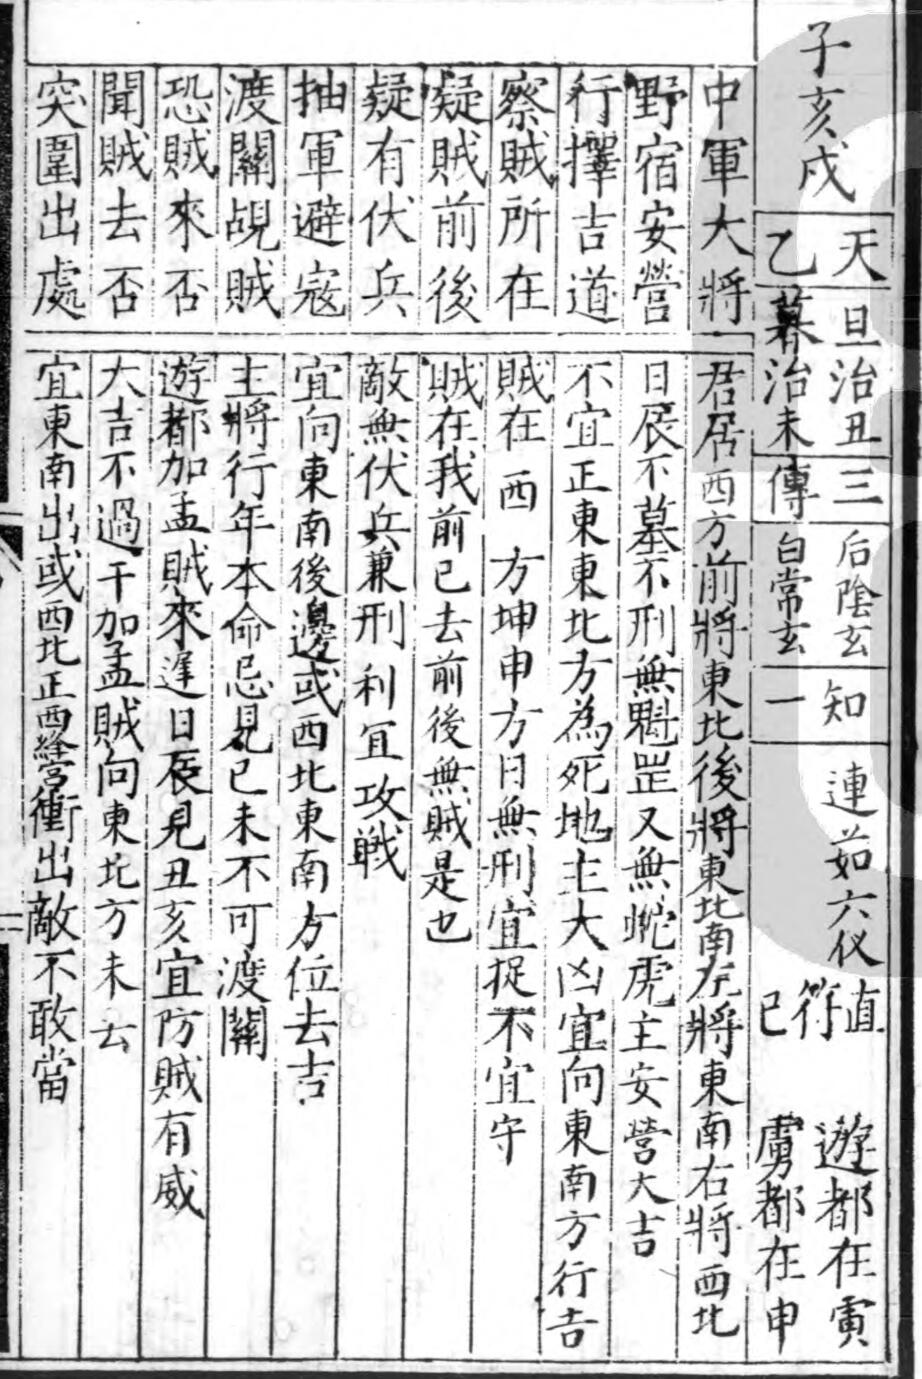 子亥戌
天乙
旦治丑
暮治未
三傳
后陰玄
白常玄
知一
連茹六仪
直符己
遊都在寅
虜都在申
中軍大將
君居西方前將東北後將東北南左將東南右將西北
野宿安營
日辰不墓不刑無魁罡又無蛇虎主安營大吉
行擇吉道
不宜正東東北方為死地主大凶宜向東南方行吉
察賊所在
賊在西方坤申方日無刑宜捉不宜守
疑賊前後
賊在我前已去前後無賊是也
疑有伏兵
敵無伏兵兼刑利宜攻戰
抽軍避寇
宜向東南後邊或西北東南方位去吉
渡關覘賊
主將行年本命忌見巳未不可渡關
恐賊來否
遊都加孟賊來遲日辰見丑亥宜防賊有威
聞賊去否
大吉不過干加孟賊向東北方未去
突圍出處
宜東南出或西北正西縫營衝出敵不敢當